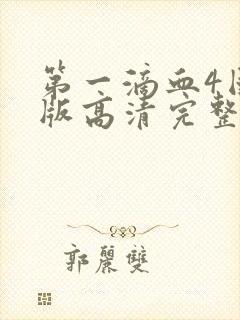 第一滴血4
版高清完整
郭麗雙